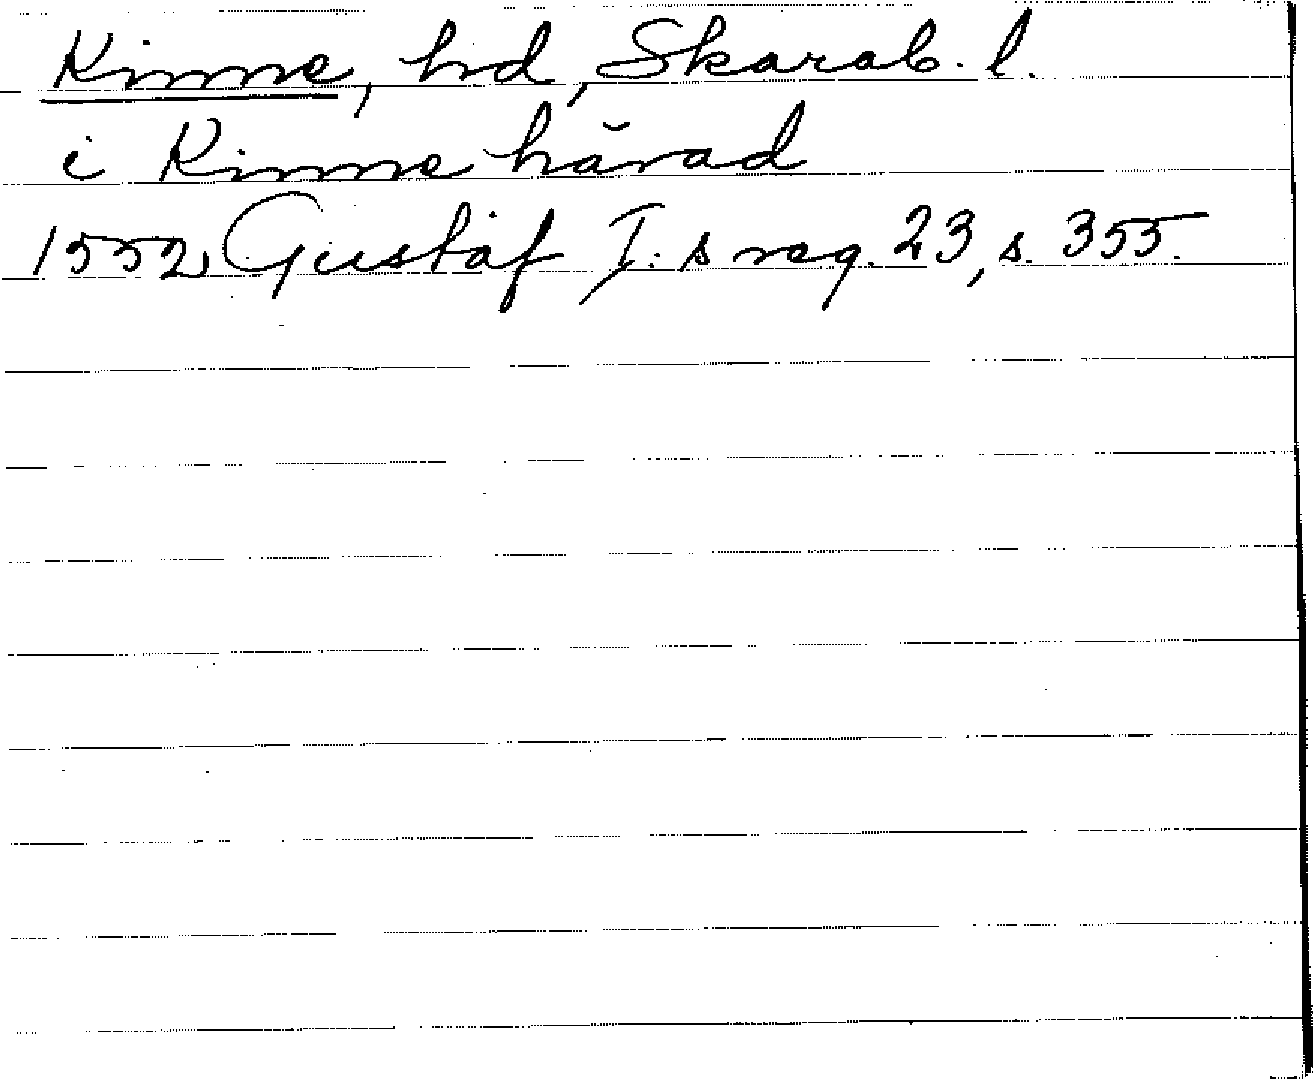 Kinne, hd, Skarab. l.
i Kinne härad
1552 Gustaf I:s reg. 23, s. 355.